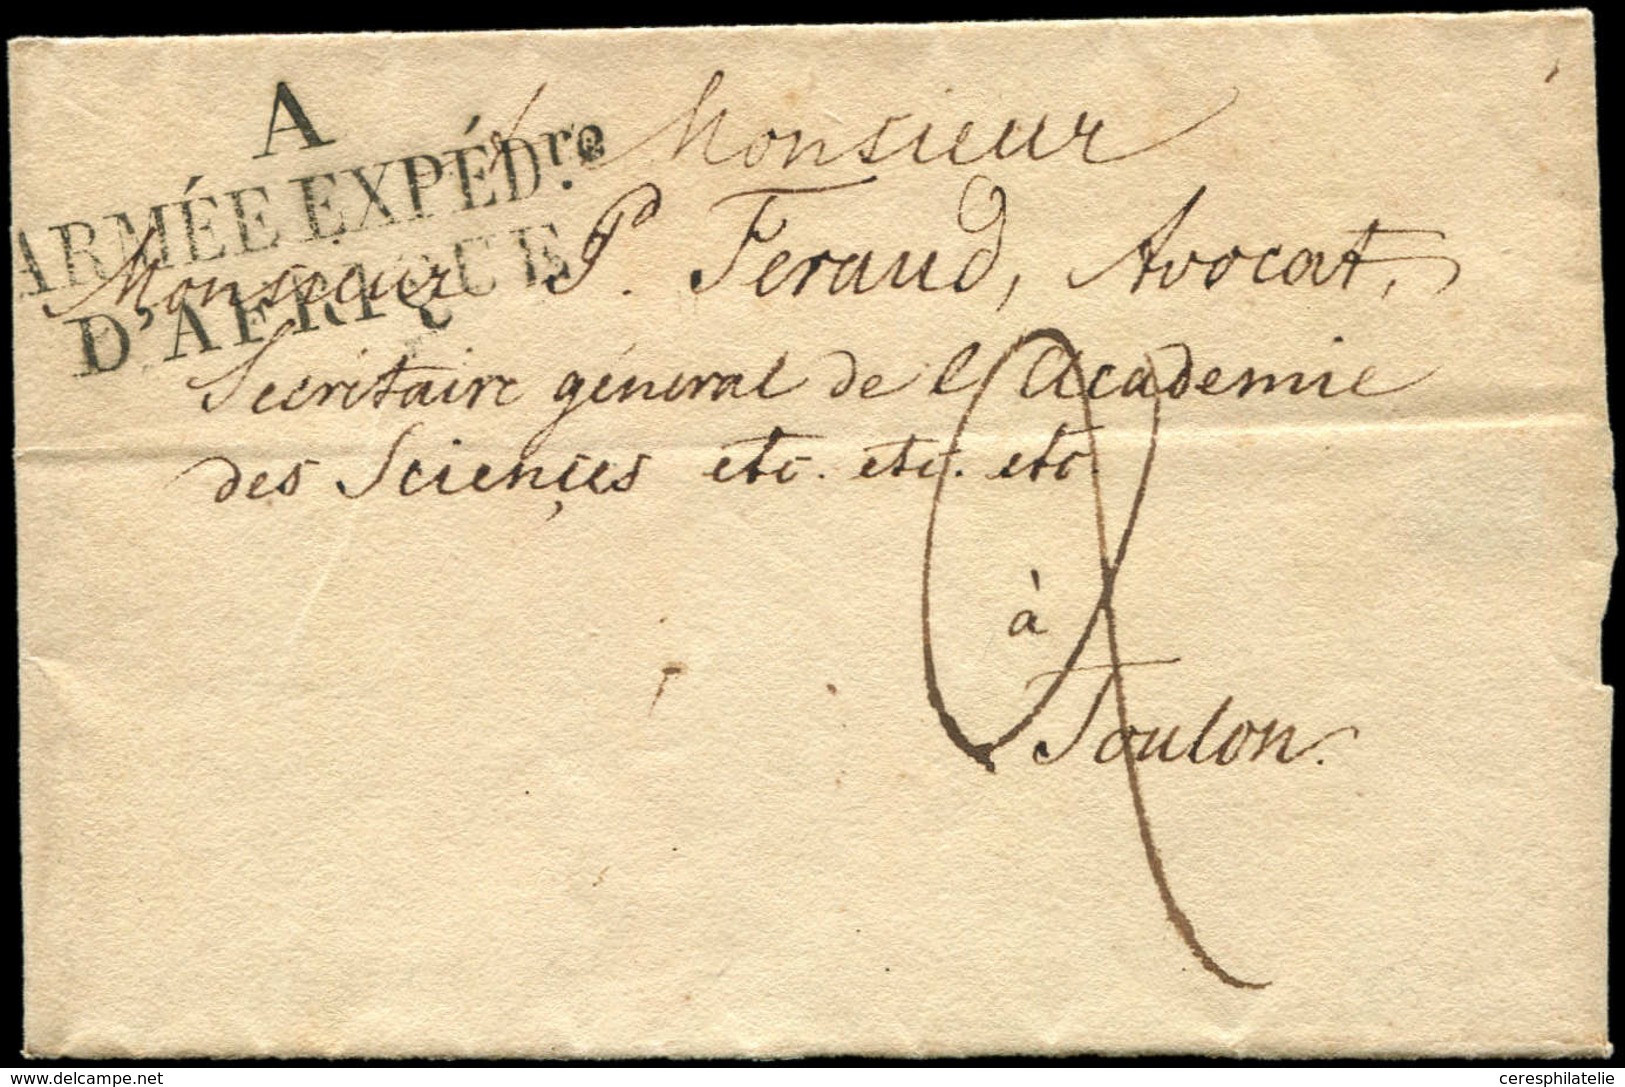 A
ARMÉE EXPÉD.re
D'AFRIQUE
à Monsieur
Monsieur Pd. Feraud, Avocat,
Secrétaire général de l'Academie
des Sciences etc. etc. etc.
à
Toulon.
delcampe.net
ceresphilatelie